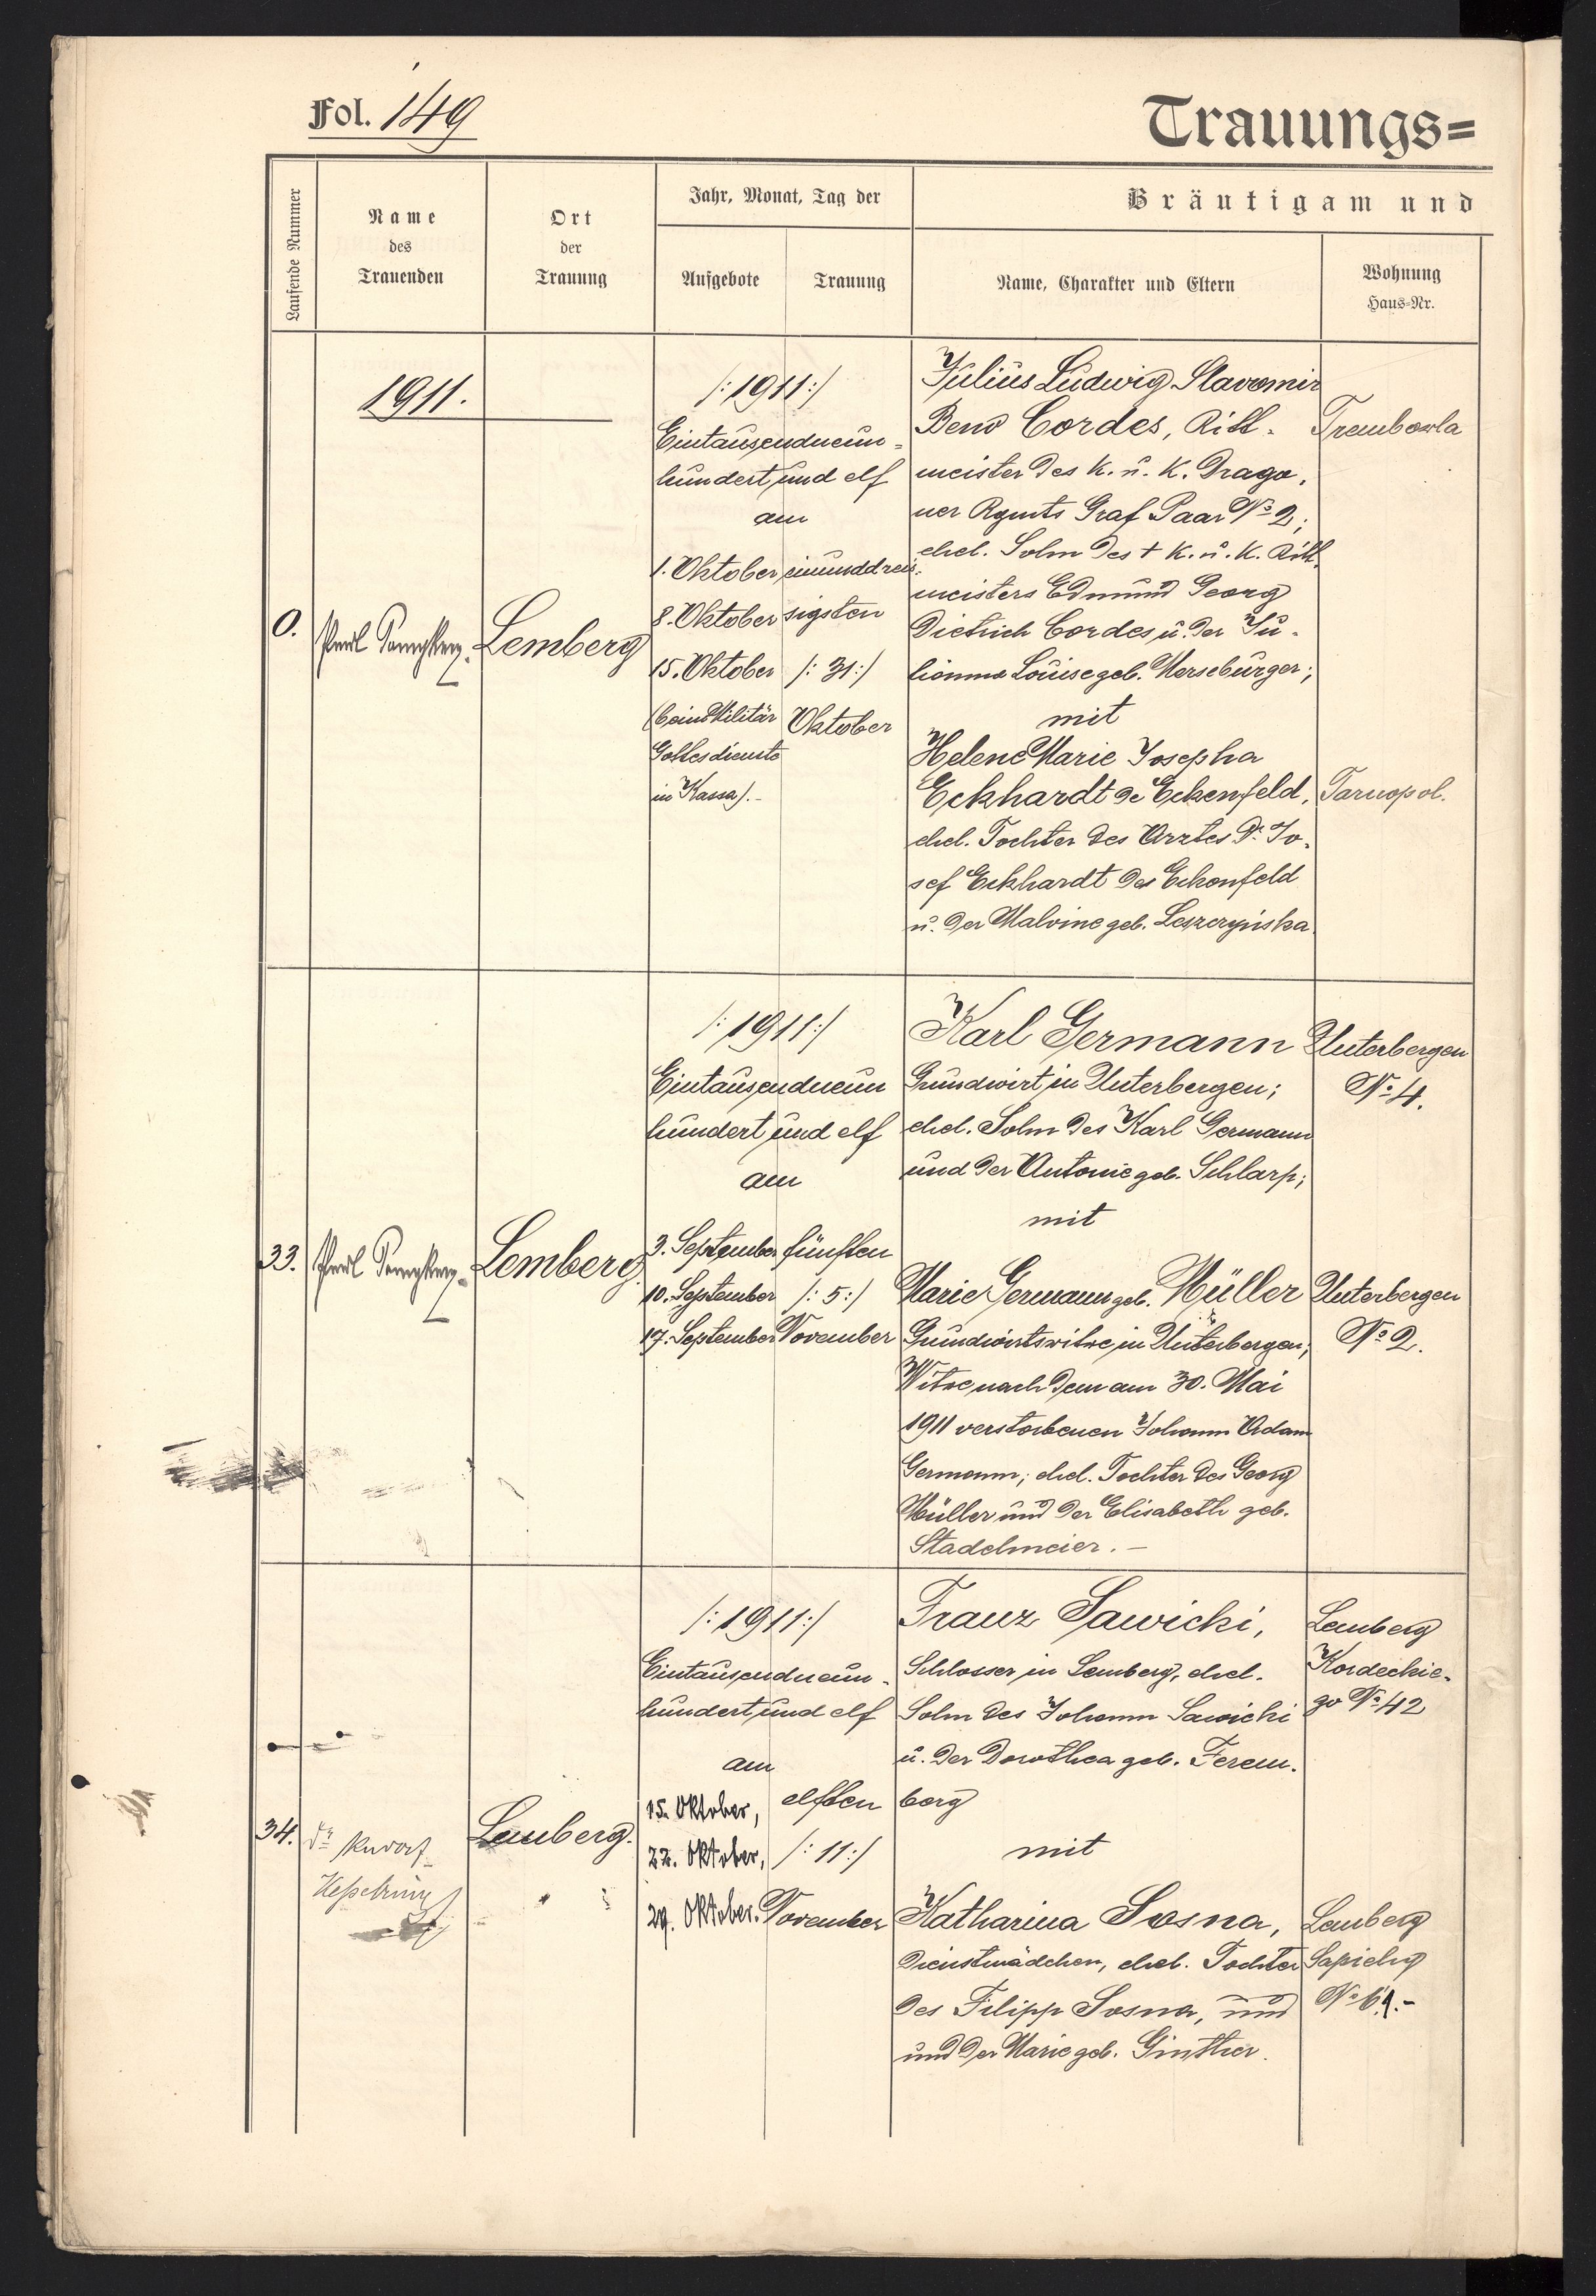 Fol. 149
Trauungs=
Laufende Nummer
Name
des
Trauenden
Ort
der
Trauung
Jahr, Monat, Tag der
Aufgebote
Trauung
Bräutigam und
Name, Charakter und Eltern
Wohnung
Haus-Nr.
1911.
0.
Lemberg
/: 1911 :/
Eintausendneun-
hundert und elf
am
1. Oktober
8. Oktober
15. Oktober
(beim Militär
Gottesdienste
in Kassa).-
einunddreis-
sigsten
/: 31 :/
Oktober
Julius Ludwig Slavomir
Beno Cordes, Ritt-
meister des K. u. K. Drago-
ner Rgmts Graf Paar No 2;
ehel. Sohn des † K. u. K. Ritt-
meisters Edmund Georg
Dietrich Cordes u. der Ju-
lianna Louise geb. Merseburger;
mit
Helene Marie Josepha
Eckhardt de Eckenfeld,
ehel. Tochter des Arztes Dr. Jo-
sef Eckhardt de Eckenfeld
u. der Malvine geb. Leszczyńska.
Trembowla
Tarnopol.
33.
Lemberg
/: 1911 :/
Eintausendneun
hundert und elf
am
3. September
10. September
17. September
fünften
/: 5 :/
November
Karl Germann
Grundwirt in Unterbergen;
ehel. Sohn des Karl Germann
und der Antonie geb. Schlarp;
mit
Marie Germann geb. Müller
Grundwirtswitwe in Unterbergen;
Witwe nach dem am 30. Mai
1911 verstorbenen Johann Adam
Germann; ehel. Tochter des Georg
Müller und der Elisabeth geb.
Stadelmeier. -
Unterbergen
No 4.
Unterbergen
No 2.
34.
Dr.
Kesselring
Lemberg.
/: 1911 :/
Eintausendneun-
hundert und elf
am
15. Oktober,
22. Oktober,
29. Oktober.
elften
/: 11 :/
November
Franz Sawicki,
Schlosser in Lemberg, ehel.
Sohn des Johann Sawicki
u. der Dorothea geb. Ferem-
berg
mit
Katharina Sosna,
Dienstmädchen, ehel. Tochter
des Filipp Sosna, und
und der Marie geb. Ginther.
Lemberg
Kordeckie-
go No 42
Lemberg
Sapiehy